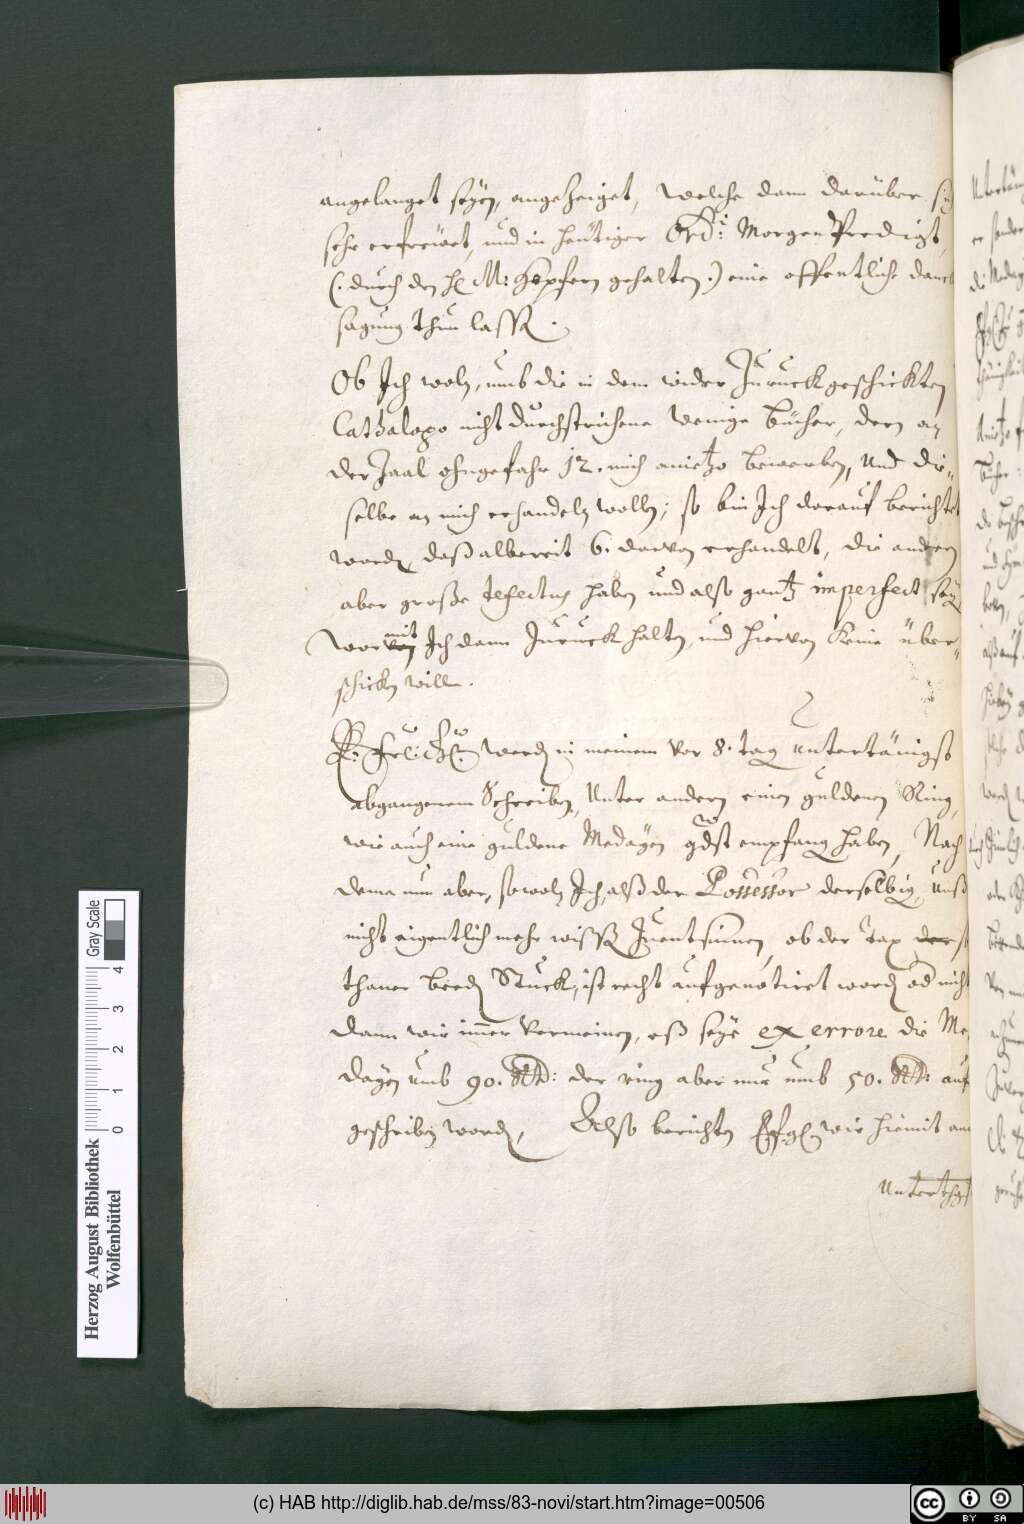 angelanget seyen, angezeiget, welche dann darüber sich
sehr erfreüet, und in heütiger Ord: Morgen Predigt,
(: durch den H. M: Hopfern gehalten :) eine offentliche danck
sagung thun lassen.
Ob Ich woln, umb die in dem wider Zuruckgeschickten
Cathalogo nicht durchstrichene wenige Bücher, dern an
der Zaal ohngefahr 12. mich anietzo bewerben, und die-
selbe an mich erhandeln wollen; so bin Ich darauf berichtet
worden, daß albereit 6. darvon erhandelt, die andern
aber große defectus haben und also gantz imperfect sey
wormit Ich dann Zuruck halten, und hiervon keine über-
schicken will.
werden in meinem vor 8. tag untertänigst
abgangenem Schreiben, Unter andern einen guldenen Ring,
wie auch eine guldene Medayen gdst empfang haben, Nach
deme nun aber, sowoln Ich, alß der Possessor derselbig, unß
nicht eigentlich mehr wissen Zuentsinnen, ob der Tax
thaner beeder Stuck, ist recht aufgenotiret worden od nicht
dann wir immer vermeinen, eß seye ex errore die Me
dayen umb 90. Rthl: der ring aber nur umb 50. Rthl: auf
geschriben worden, Also berichten wir hiemit am
Unterthgst
Herzog August Bibliothek
Wolfenbüttel
Gray Scale
0 1 2 3 4
(c) HAB http://diglib.hab.de/mss/83-novi/start.htm?image=00506
cc BY SA